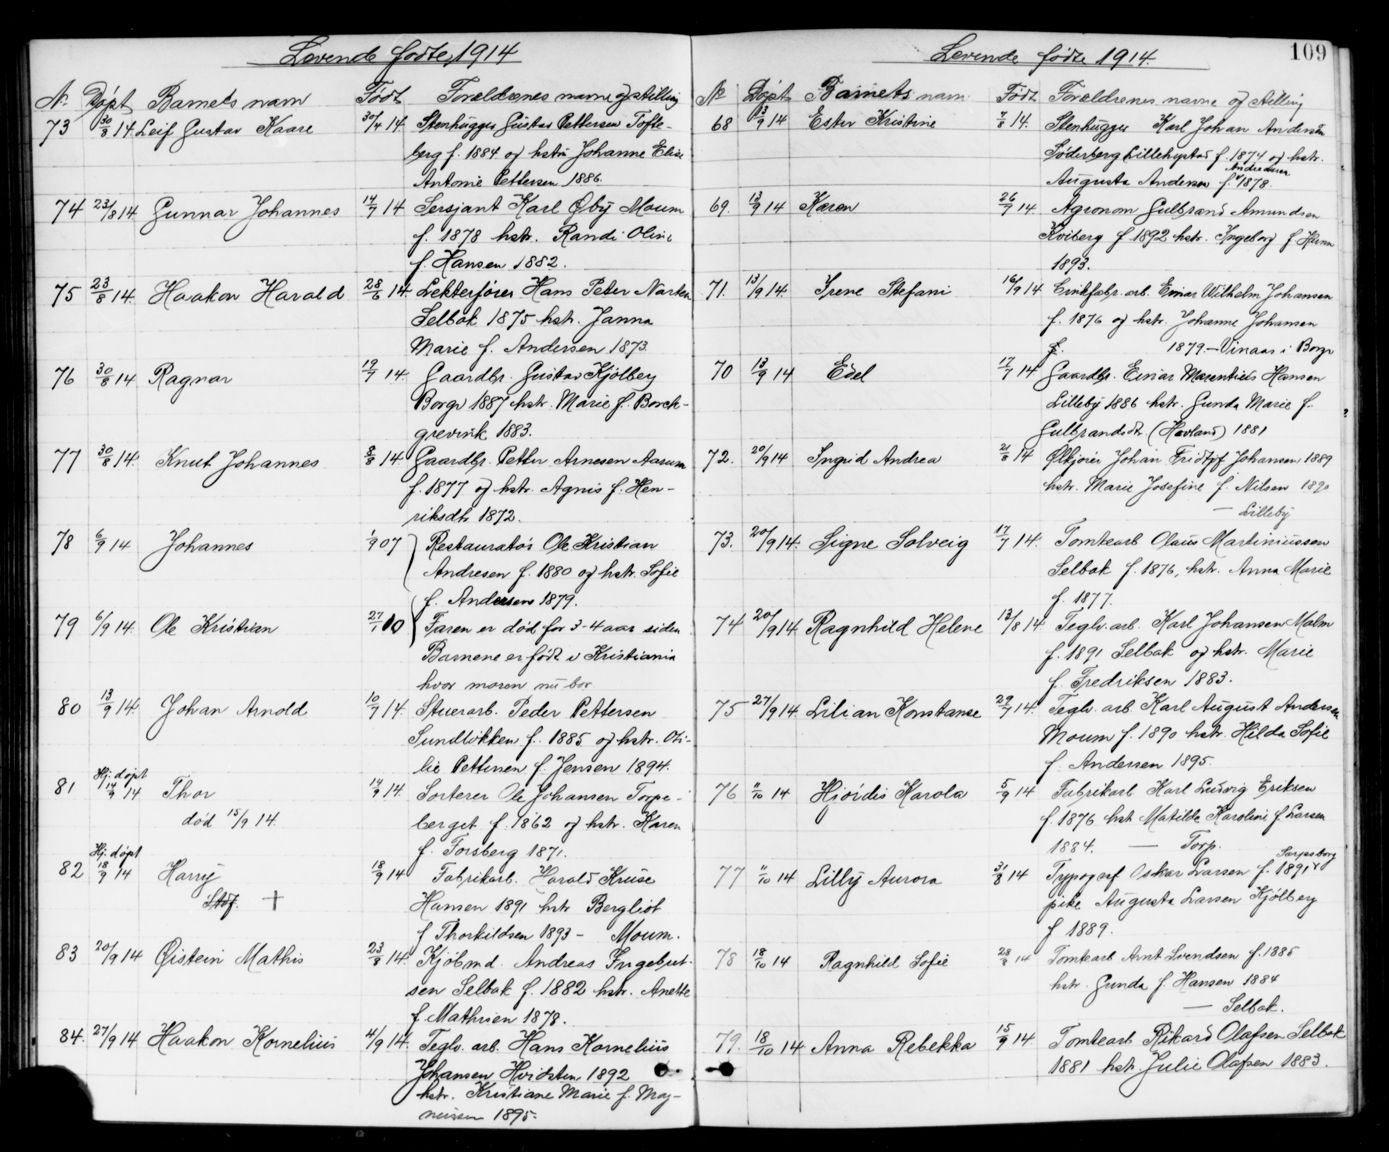 Levende fødte, 1914
Nr. Døpt Barnets navn Født Forældrenes navne og stilling
73 30/8 14. Leif Gustav Kaare 30/4 14. Stenhugger Gustav Pettersen Tofte-
berg f. 1884 og hstr Johanne Elise
Antonie Pettersen 1886.
74 23/8 14 Gunnar Johannes 14/7 14 Sersjant Karl Øby Moum
f. 1878 hstr. Randi Oline
f. Hansen 1882.
75 23/8 14. Haakon Harald 28/6 14. Lekterfører Hans Peter
Selbak 1875 hstr. Janna
Marie f. Andersen 1873.
76 30/8 14 Ragnar 19/7 14. Gaardbr. Gustav Kjølberg
Borge 1887 hstr. Marie f. Borch-
grevink 1883.
77 30/8 14. Knut Johannes 8/8 14 Gaardbr. Petter Arnesen Aarum
f. 1877 og hstr. Agnis f. Hen-
riksdtr 1872.
78 6/9 14 Johannes 1/9 07 Restauratør Ole Kristian
Andresen f. 1880 og hstr. Sofie
f. Andersen 1879.
79 6/9 14. Ole Kristian 27/1 10 Faren er død for 3-4 aar siden
Barnene er født i Kristiania
hvor moren nu bor
80 13/9 14. Johan Arnold 10/7 14. Stuerarb. Peder Pettersen
Sundløkken f. 1885 og hstr. Oti-
lie Pettersen f. Jensen 1894.
81 Hj. døpt 14/9 14 Thor 14/9 14. Sorterer Ole Johansen Torpe-
død 15/9 14. berget f. 1862 og hstr. Karen
f. Forsberg 1871.
82 Hj. døpt 18/9 14 Harry 18/9 14 Fabrikarb. Harald Kruse
+ Hansen 1891 hstr Bergliot
f Thorkildsen 1893 - Moum.
83 20/9 14 Øistein Mathis 23/8 14. Kjøbmd. Andreas Ingebret-
sen Selbak f. 1882 hstr. Anette
f. Mathisen 1878.
84. 27/9 14 Haakon Kornelius 4/9 14. Teglv. arb. Hans Kornelius
Johansen Hvidsten 1892
hstr. Kristiane Marie f. Mag-
nussen 1895.
Levende fødte 1914. 109
Nr Døpt Barnets navn Født Forældrenes navne og stilling
68 13/9 14 Ester Kristine 7/8 14. Stenhugger Karl Johan Andersen
Søderberg f. 1874 og hstr.
Augusta Andersen f. 1878.
69. 13/9 14 Karen 26/7 14. Agronom Gulbrand Amundsen
Kviberg f 1892 hstr. Ingeborg f
1893.
71. 13/9 14. Irene Stefani 16/9 14. Cinkfabr. arb. Einar Wilhelm Johansen
f. 1876 og hstr. Johanne Johansen
f. 1879. - i Borge
70 13/9 14 Edel 17/7 14 Gaardbr. Einar Marentius Hansen
Lilleby 1886 hstr. Gunda Marie f.
Gulbrandsdtr (Havland) 1881
72. 20/9 14 Ingrid Andrea 21/8 14 Ølkjører Johan Fridtjof Johansen 1889
hstr. Marie Josefine f. Nilsen 1890
— Lilleby
73. 20/9 14. Signe Solveig 17/7 14. Tomtearb Olaus Martiniussen
Selbak f. 1876, hstr. Anna Marie
f 1877.
74 20/9 14. Ragnhild Helene 13/8 14 Teglv. arb. Karl Johansen Malm
f. 1891 Selbak og hstr. Marie
f. Fredriksen 1883.
75 27/9 14. Lilian Konstanse 29/7 14. Teglv. arb Karl August Andersen
Moum f. 1890 hstr. Hilda Sofie
f. Andersen 1895.
76 11/10 14 Hjørdis Karola 5/9 14 Fabrikarb Karl Ludvig Eriksen
f. 1876 hstr Matilde Karoline f Larsen
1884. — Torp.
77 11/10 14 Lilly Aurora 31/8 14 Typograf Oskar Larsen f. 1891 i Sarpsborg
pike Augusta Larsen Kjølberg
f 1889.
78 18/10 14 Ragnhild Sofie 28/8 14 Tomtearb Arnt Svendsen f. 1885
hstr. Gunda f. Hansen 1884
— Selbak.
79. 18/10 14 Anna Rebekka 15/9 14 Tomtearb Rikard Olafsen Selbak
1881 hstr Julie Olafsen 1883.